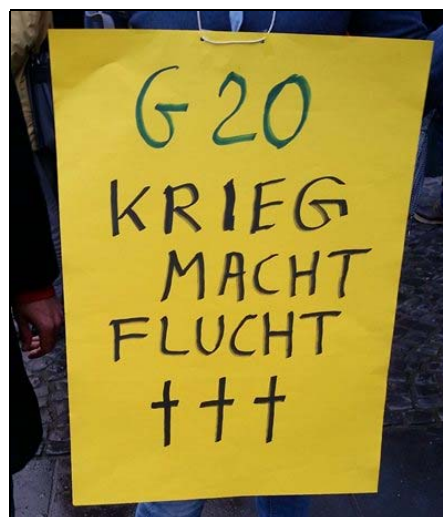 G20
KRIEG
MACHT
FLUCHT
†††